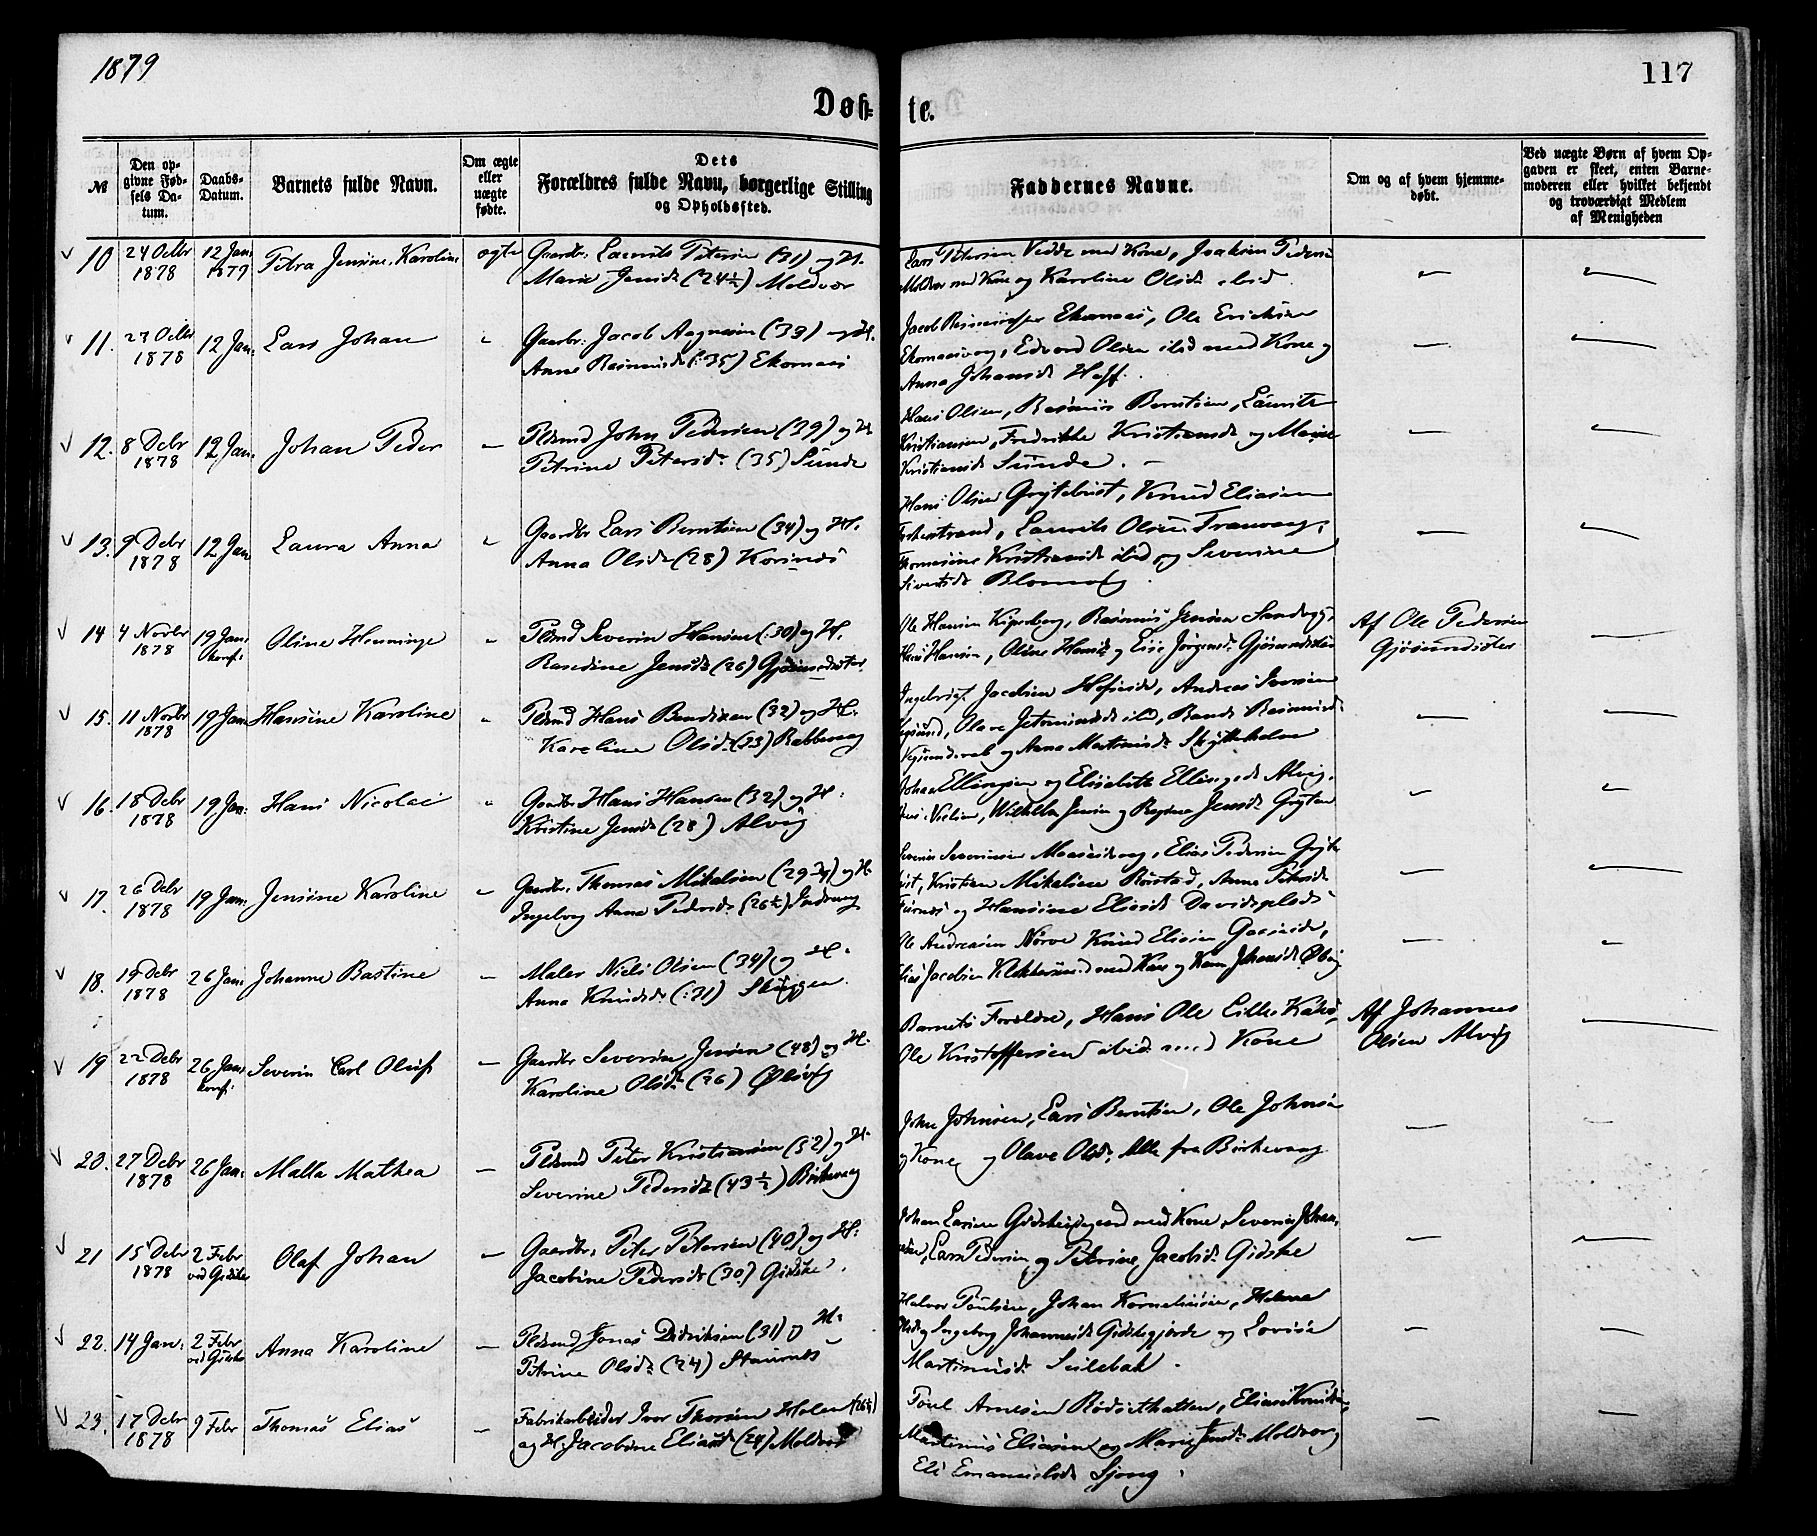 1879
117
Døb-te.
№
Den opgivne Fødsels Datum.
Daabs-Datum.
Barnets fulde Navn.
Om ægte eller uægte fødte.
Dets Forældres fulde Navn, borgerlige Stilling og Opholdssted.
Faddernes Navne.
Om og af hvem hjemmedøbt.
Ved uægte Børn af hvem Opgaven er skeet, enten Barnemoderen eller hvilket bekjendt og troværdigt Medlem af Menigheden
10 24 Octbr 1878 12 Jan 1879 Petra Jensine Karoline ægte Gaardbr. Laurits Petersen (31) og H.
Marie Jensdr (24½) Moldvær
Lars Petersen Vedde med Kone, Joakim Peders
Moldvær med Kone og Karoline Olsdr ibid
11. 23 Octbr 1878 12 Jan. Lars Johan Gaardbr. Jacob Aagesen (33) og H.
Anne Rasmusdr (35) Ekornæs
Ekornæs, Ole Ericksen
Edvard Olsen ibid med Kone og
Anna Johansdr Hoff.
12. 8 Debr 1878 12 Jan. Johan Peder Plsmd John Pedersen (39) og H.
Petrine Petersdr (35) Sunde
Hans Olsen, Rasmus Berntsen, Laurits
Kristiansen, Fredrikke Kristiansdr og Marie
Kristiansdr Sunde.
13. 9 Debr 1878 12 Jan Laura Anna Gaardbr Lars Berntsen (34) og H.
Anna Olsdr (28) Korsnæs
Hans Olsen Grytebust, Knud Eliasen
Laurits Olsen Tranvaag,
Kristiansdr ibid og Severine
Sivertsdr
14 4 Novbr 1878 19 Jan. konf: Oline Henninge Plsmd Severin Hansen (30) og H.
Rasedine Jensdr (26) Gjøsundsæter
Ole Hansen Kipersberg, Rasmus Jensen Sandvig,
Hans Hansen, Oline Hansdr og Lise Jørgensdr Gjøsundsæter
Af Ole Pedersen
Gjøsundsæter
15. 11 Novbr 1878 19 Jan Hansine Karoline Plsmd Hans Bendixen (32) og H.
Karoline Olsdr (33) Rabbevaag
Ingebrigt Jacobsen Andreas Iversen
ibid, Rasmusdr
og Anna Martinusdr
16. 18 Debr 1878 19 Jan: Hans Nicolai Gaardbr Hans Hansen (32) og H:
Kristine Jensdr (28) Alvig
Johan Ellingsen og Elisabeth Ellingsdr Alvig,
Jensen og Jensdr Gryten
17. 26 Debr 1878 19 Jan: Jensine Karoline Gaardbr. Thomas Mikalsen (29¾) og H.
Ingeborg Anna Pedersdr (26½)
Severin Severinsen Maaseidvaag, Elias Pedersen Gryte
bust, Kristian Mikalsen Rørstad, Anne Petersdr
og Hansine Eliasdr Davidsplads
18. 19 Debr 1878 26 Jan Johanne Bastine Maler Niels Olsen (34) og H.
Anna Knudsdr (31)
Ole Andreasen Nørve Knud Elisen Gaaseide,
Elias Jacobsen med Kone og Johansdr
19 22 Debr 1878 26 Jan konf: Severin Carl Oluf Gaardbr Severin Jensen (48) og H.
Karoline Olsdr (36)
Barnets Forældre, Hans Ole Lille Kalvø,
Ole Kristoffersen ibid med Kone
Af Johannes
Olsen Alvig
20. 27 Debr 1878 26 Jan: Malla Mathea Plsmd Peter Kristiansen (32) og H.
Severine Pedersdr (43½) Birkevaag
John Johnsen, Lars Berntsen, Ole Johnsen
og Kone og Olave Olsdr. Alle fra Birkevaag
21 15 Debr 1878 2 Febr ved Gidske Olaf Johan Gaardbr. Peter Petersen (40) og H:
Jacobine Pedersdr (30) Gidske.
Johan Larsen Gidskeødegaard med Kone, Severin Johan-
Lars Pedersen og Petrine Jacobsdr Gidske
22. 14 Jan: 2 Febr ved Gidske Anna Karoline Plsmd Jonas Didriksen (31) og H:
Petrine Olsdr (24) Staurnæs
Halvor Poulsen, Johan Kornelius
Ingeborg Johannesdr Gidskegjerde og Lovise
Martinusdr
23. 17 Debr 1878 9 Febr Thomas Elias Fabrikarbeider Iver Thorsen Holen (26½)
og H. Jacobine Eliasdr (24) Moldvær
Poul Arnesen Elias Knudsen
Martinus Eliasen og Marie Jensdr Moldvær
Eli Emanuelsdr Sjong.